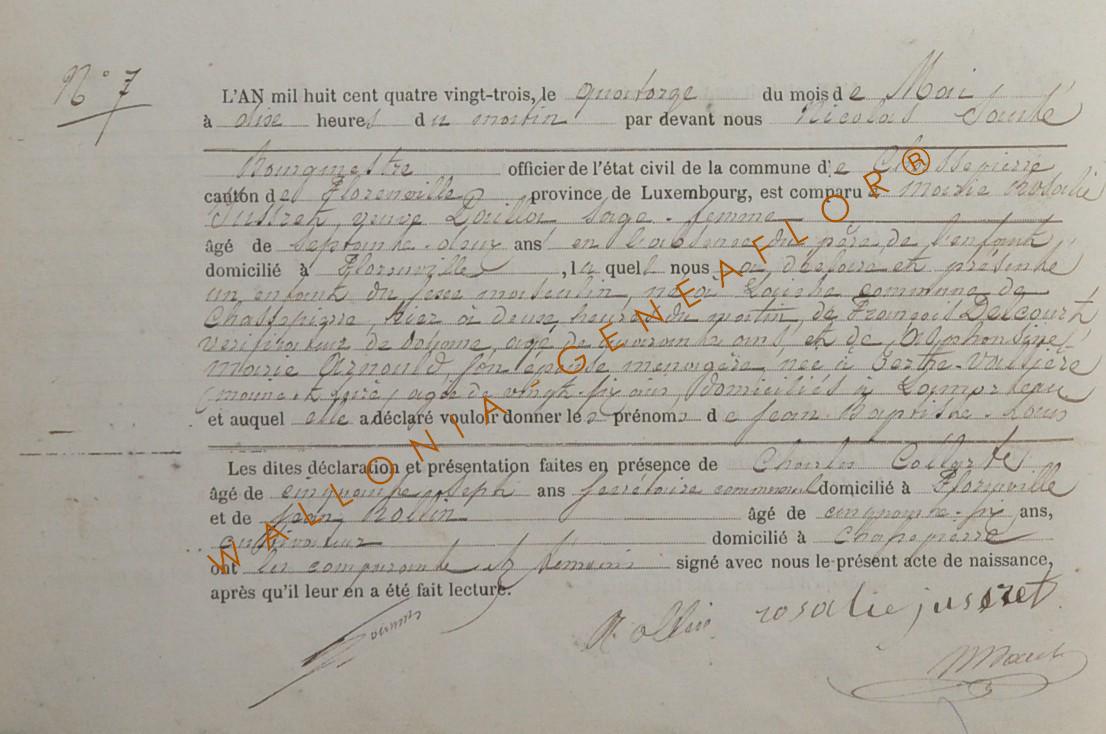 N° 7
L'AN mil huit cent quatre vingt-trois, le quatorze du mois de Mai
à dix heures du matin par devant nous Nicolas
Bourgmestre officier de l'état civil de la commune de Chassepierre
canton de Florenville province de Luxembourg, est comparu Marie Rosalie
Jusseret, veuve sage-femme
âgé de septante-deux ans en l'absence du père de l'enfant
domicilié à Florenville, laquelle nous a déclaré et présenté
un enfant du sexe masculin, né à Laiche commune de
Chassepierre, hier à deux heures du matin, de François Descourt
vérificateur de douane, âgé de quarante ans et de Alphonsine
Marie Arnould, son épouse ménagère née à
âgée de vingt-six ans, domiciliés à Lamorteau
et auquel elle a déclaré vouloir donner les prénoms de Jean-Baptiste-Louis
Les dites déclaration et présentation faites en présence de Charles
âgé de cinquante-sept ans secrétaire communal domicilié à Florenville
et de Jean Rollin âgé de cinquante-six ans,
cultivateur domicilié à Chassepierre
ont les comparante et témoins signé avec nous le présent acte de naissance,
après qu'il leur en a été fait lecture.
Rollin rosalie jusseret
WALLONIA - GENEAFLOR®